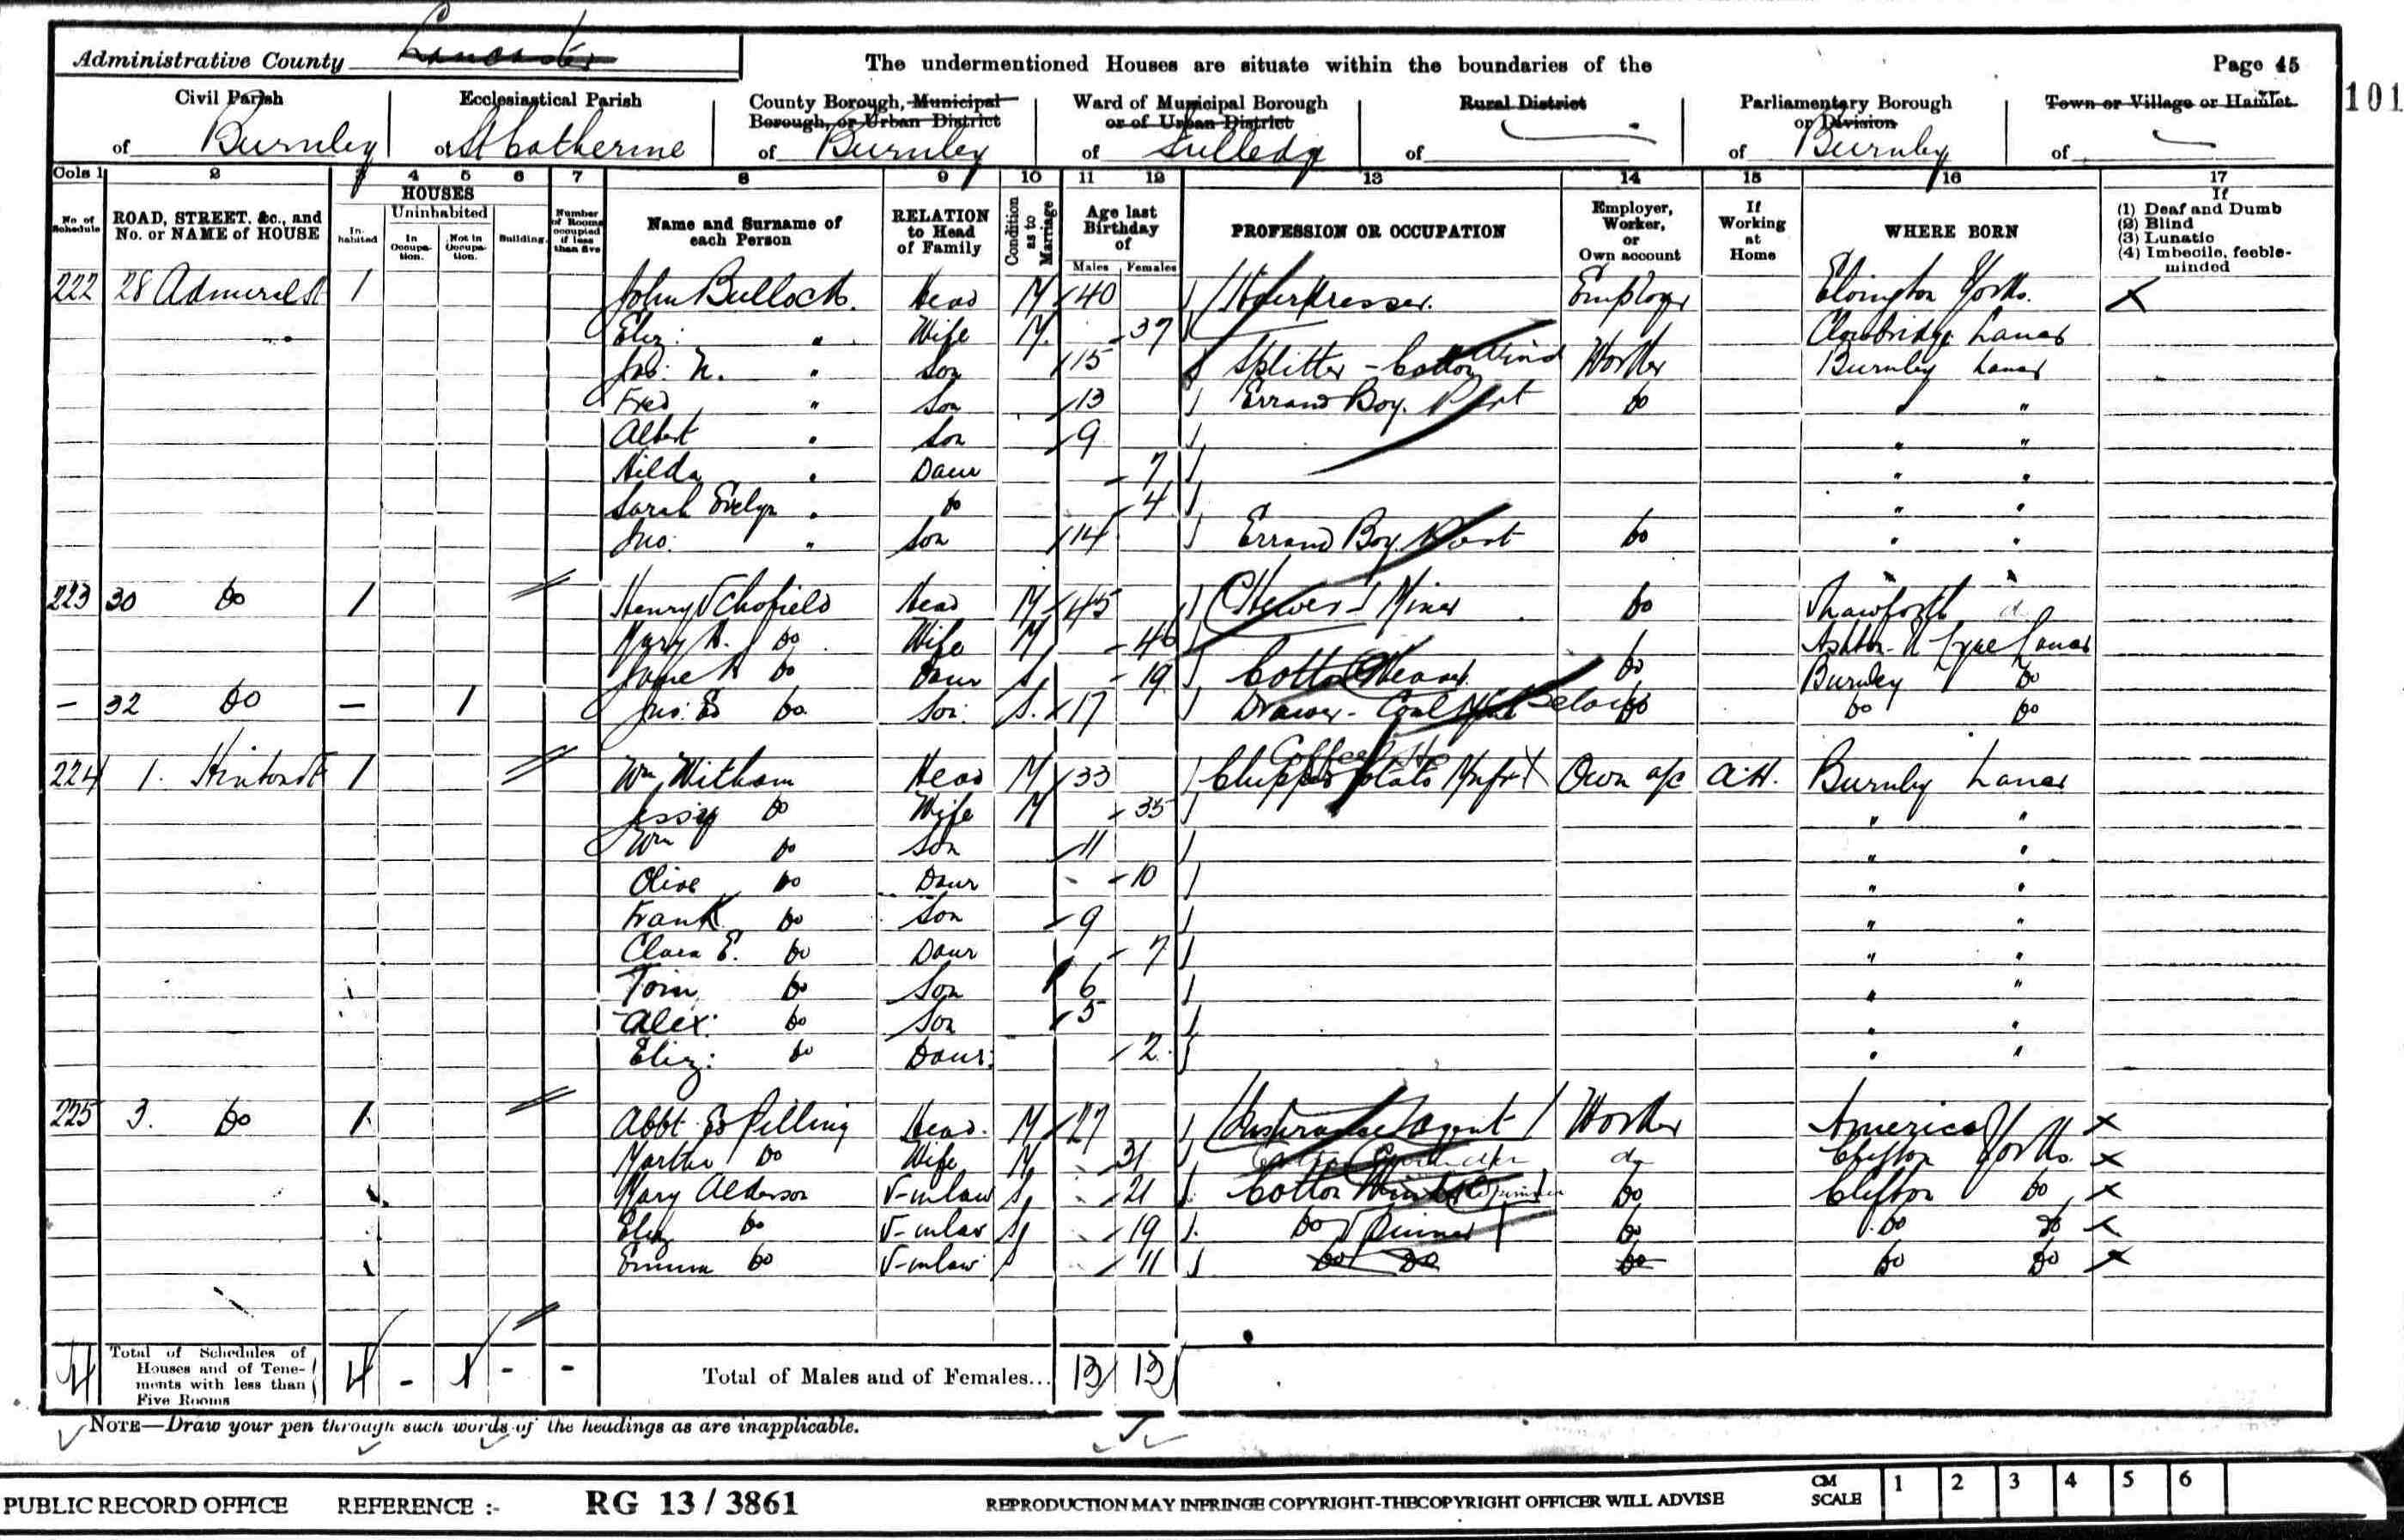 Administrative County Lancaster
The undermentioned Houses are situate within the boundaries of the
Page 45
101
Civil Parish of Burnley
Ecclesiastical Parish of St Catherine
County Borough, Municipal Borough, or Urban District of Burnley
Ward of Municipal Borough or of Urban District of
Rural District of —
Parliamentary Borough or Division of Burnley
Town or Village or Hamlet of —
Cols 1 2 3 4 5 6 7 8 9 10 11 12 13 14 15 16 17
No. of Schedule
ROAD, STREET, &c., and No. or NAME of HOUSE
HOUSES
In-habited
Uninhabited
In Occupa-tion.
Not in Occupa-tion.
Building
Number of Rooms occupied if less than five
Name and Surname of each Person
RELATION to Head of Family
Condition as to Marriage
Age last Birthday of
Males Females
PROFESSION OR OCCUPATION
Employer, Worker, or Own account
If Working at Home
WHERE BORN
If
(1) Deaf and Dumb
(2) Blind
(3) Lunatic
(4) Imbecile, feeble-minded
222 28 Admiral St 1 John Bullock Head M 40 Hairdresser Employer Yorks. X
Eliz: " Wife M. 37 Clowbridge Lancs
" Son 15 Splitter - Cotton Worker Burnley Lancs
Fred " Son 13 Errand Boy. Do " "
Albert " Son 9 " "
Hilda " Daur 7 " "
Sarah Evelyn " Do 4 " "
Jno: " Son 14 Errand Boy. Do " "
223 30 Do 1 Henry Schofield Head M 45 Hewer Miner Do Shawforth
Mary H. Do Wife M 46 Ashton U Lyne Lancs
Jane A Do Daur S. 19 Cotton Weaver Do Burnley Do
— 32 Do — 1 Jno: Ed Do Son. S. 17 Drawer - Coal Below Do Do Do
224 1. Hinton St 1 Wm Witham Head M 33 Chipped Potato Mnfr Own a/c At H. Burnley Lancs
Jessy Do Wife M 35 " "
Wm Do Son 11 " "
Olive Do Daur 10 " "
Frank Do Son 9 " "
Clara E. Do Daur 7 " "
Tom Do Son 6 " "
Alex: Do Son 5 " "
Eliz: Do Daur: 2 " "
225 3. Do 1 Abbt Ed Pilling Head. M 27 Insurance Agent Worker America X
Martha Do Wife M 31 Cotton do Clifton Yorks. X
Mary Alderson S-inlaw S 21 Cotton Do Clifton Do X
Eliz Do S-inlaw S 19 Do Spinner Do Do Do X
Emma Do S-inlaw S 11 Do Do Do Do Do X
4 Total of Schedules of Houses and of Tene-ments with less than Five Rooms 4 - 1 - - Total of Males and of Females... 13 13
NOTE—Draw your pen through such words of the headings as are inapplicable.
PUBLIC RECORD OFFICE REFERENCE :- RG 13 / 3861 REPRODUCTION MAY INFRINGE COPYRIGHT-THE COPYRIGHT OFFICER WILL ADVISE CM SCALE 1 2 3 4 5 6